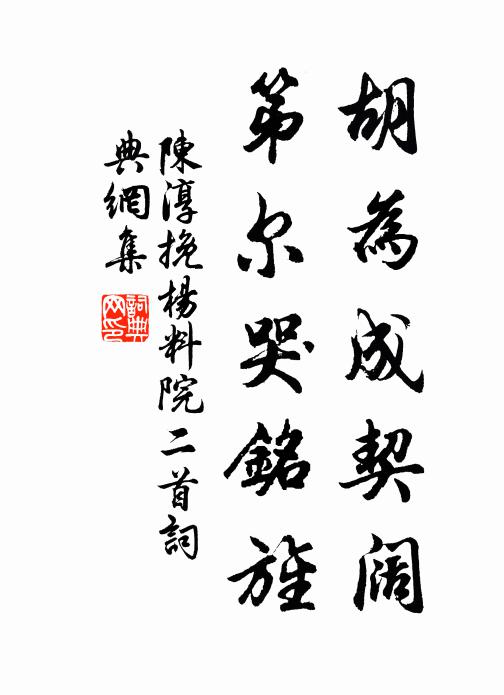 胡為成契阔
第尔哭銘旌
陳淳挽楊料院二首詞
典網集
詞典网印